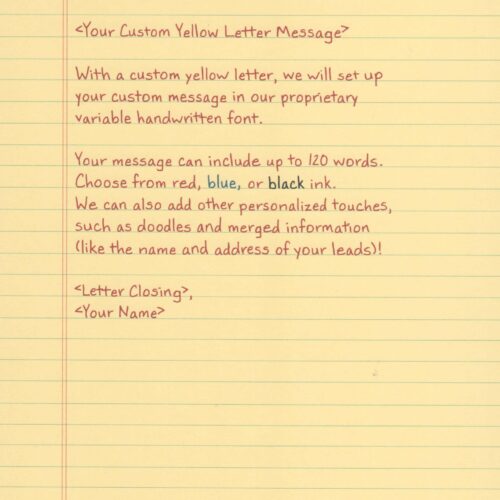 <Your Custom Yellow Letter Message>
With a custom yellow letter, we will set up
your custom message in our proprietary
variable handwritten font.
Your message can include up to 120 words.
Choose from red, blue, or black ink.
We can also add other personalized touches,
such as doodles and merged information
(like the name and address of your leads)!
<Letter Closing>,
<Your Name>